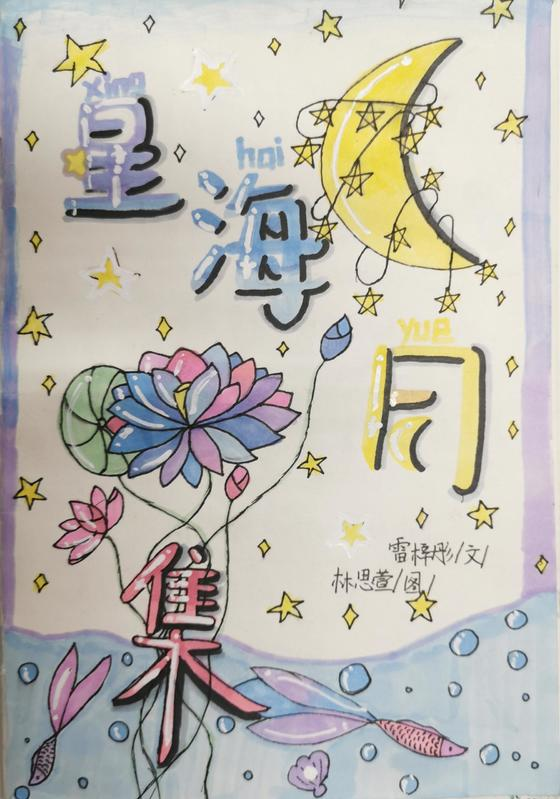 xing
星
hai
海
yue
月
集
雷梓彤/文/
林思萱/图/